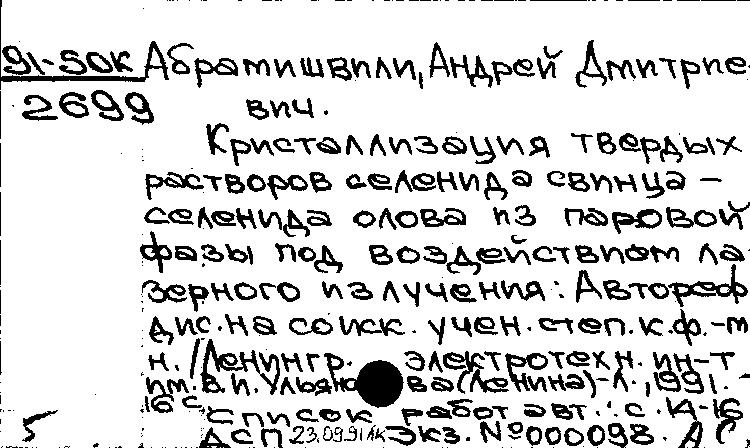 91-50К Абрамишвили, Андрей Дмитрие-
2699 вич.
Кристаллизация твердых
растворов селенида свинца -
селенида олова из паровой
фазы под воздействием ла-
зерного излучения: Автореф.
дис. на соиск. учен. степ. к.ф.-м.
н. /Ленингр. электротехн. ин-т
им. В.И. Ульянова (Ленина)-Л., 1991.
16 с.
Список работ авт.: с. 14-16
5 ДСП 23.09.91 Экз. №000098.